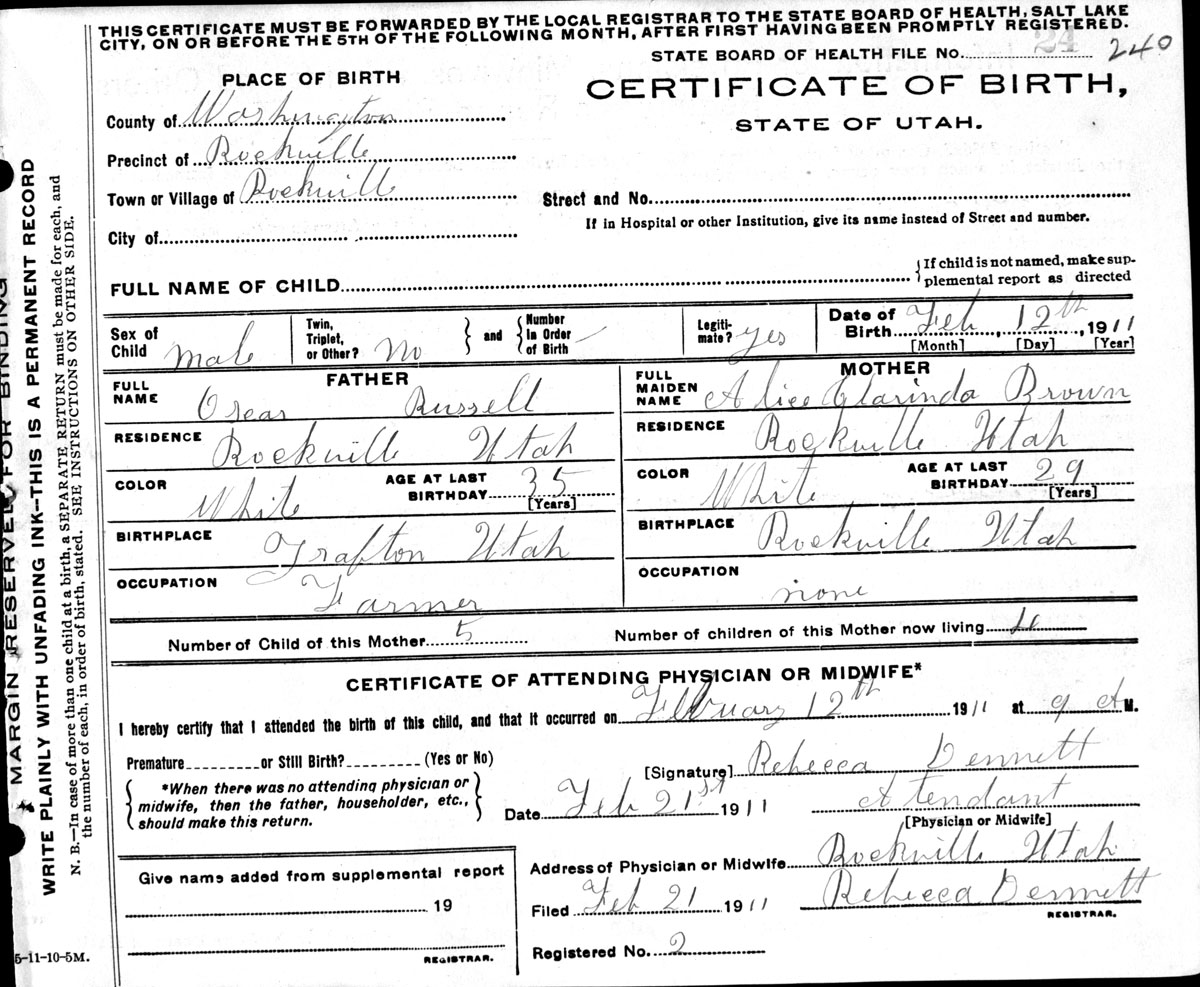 THIS CERTIFICATE MUST BE FORWARDED BY THE LOCAL REGISTRAR TO THE STATE BOARD OF HEALTH, SALT LAKE
CITY, ON OR BEFORE THE 5TH OF THE FOLLOWING MONTH, AFTER FIRST HAVING BEEN PROMPTLY REGISTERED.
STATE BOARD OF HEALTH FILE No. 24 240
PLACE OF BIRTH
CERTIFICATE OF BIRTH,
STATE OF UTAH.
County of Washington
Precinct of Rockville
Town or Village of Rockville
Street and No.
If in Hospital or other Institution, give its name instead of Street and number.
City of
FULL NAME OF CHILD
If child is not named, make sup-
plemental report as directed
Sex of Child Male
Twin, Triplet, or Other? No
and Number In Order of Birth
Legiti-mate? Yes
Date of Birth Feb, 12th, 1911
[Month] [Day] [Year]
FATHER
FULL NAME Oscar Russell
RESIDENCE Rockville Utah
COLOR White AGE AT LAST BIRTHDAY 35
[Years]
BIRTHPLACE Grafton Utah
OCCUPATION Farmer
MOTHER
FULL MAIDEN NAME Alice Clarinda Brown
RESIDENCE Rockville Utah
COLOR White AGE AT LAST BIRTHDAY 29
[Years]
BIRTHPLACE Rockville Utah
OCCUPATION none
Number of Child of this Mother 5 Number of children of this Mother now living
CERTIFICATE OF ATTENDING PHYSICIAN OR MIDWIFE*
I hereby certify that I attended the birth of this child, and that it occurred on February 12th 1911 at 9 A M.
Premature or Still Birth? (Yes or No)
*When there was no attending physician or
midwife, then the father, householder, etc.,
should make this return.
[Signature] Rebecca Dennett
Date Feb 21st 1911 Atendant
[Physician or Midwife]
Address of Physician or Midwife Rockville Utah
Filed Feb 21 1911 Rebecca Dennett
REGISTRAR.
Registered No. 2
Give name added from supplemental report
19
REGISTRAR.
MARGIN RESERVED FOR BINDING
WRITE PLAINLY WITH UNFADING INK—THIS IS A PERMANENT RECORD
N. B.—In case of more than one child at a birth, a SEPARATE RETURN must be made for each, and
the number of each, in order of birth, stated. SEE INSTRUCTIONS ON OTHER SIDE.
5-11-10-5M.